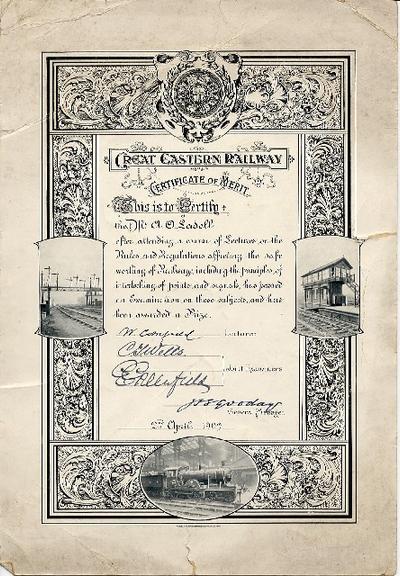 GREAT EASTERN RAILWAY
CERTIFICATE OF MERIT.
This is to Certify
that Mr A. O. Ladell
after attending a course of Lectures on the
Rules and Regulations affecting the safe
working of Railways, including the principles of
interlocking of points and signals, has passed
an Examination on these subjects, and has
been awarded a Prize.
Lecturer
Wells
2nd April 190